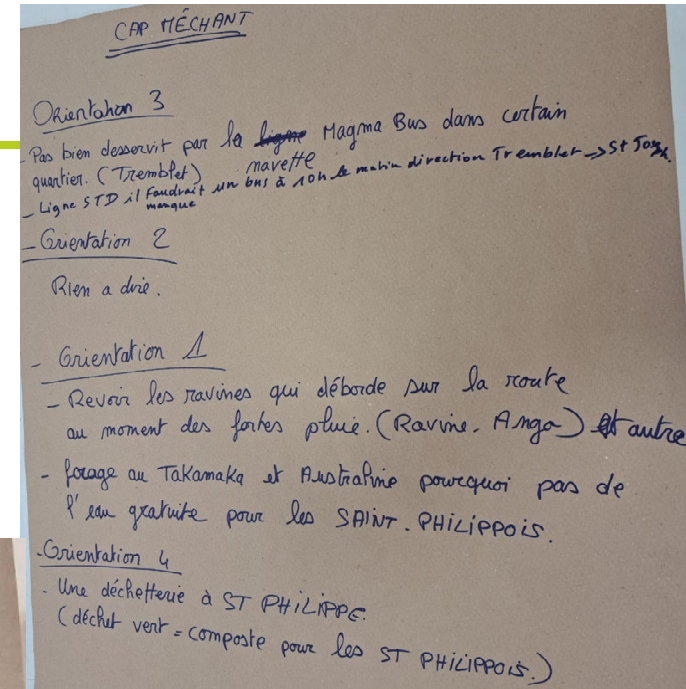 CAP MÉCHANT
Orientation 3
- Pas bien desservit par la ligne Magma Bus dans certain
navette
quartier. (Tremblet)
- Ligne STD il faudrait un bus à 10h le matin direction Tremblet → St Josph.
manque
- Orientation 2
Rien a dire.
- Orientation 1
- Revoir les ravines qui déborde sur la route
au moment des fortes pluie. (Ravine. Ango) et autre
- forage au Takamaka et Australine pourquoi pas de
l'eau gratuite pour les SAINT-PHILIPPOIS.
- Orientation 4
- Une déchetterie à ST PHILIPPE.
(déchet vert = composte pour les ST PHILIPPOIS.)